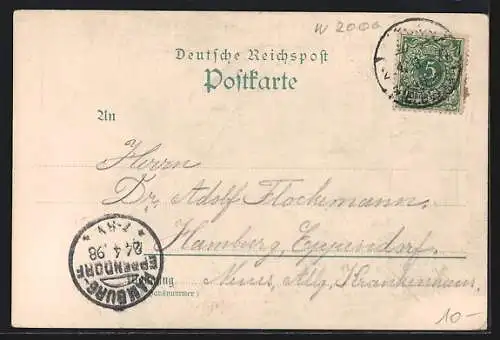 W 2000
Deutsche Reichspost
Postkarte
5
An
Herrn
Dr. Adolf Flockemann.
Hamburg, Eppendorf.
Neues, Allg. Krankenhaus.
HAMBURG-
EPPENDORF
24.4.98
* 7-8V *
10.-